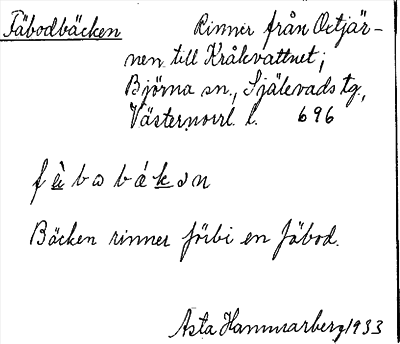 Fäbodbäcken Rinner från Oxtjär-
nen till Kråkvattnet;
Björna sn., Själevads tg.,
Västernorrl. l. 696
fä̀bωbákən
Bäcken rinner förbi en fäbod.
Asta Hammarberg 1933